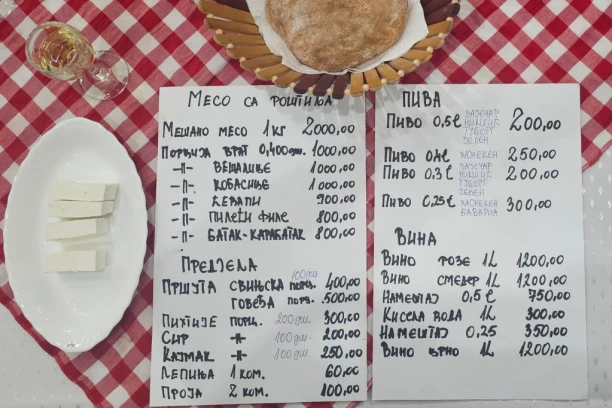 Месо са роштиља
Мешано месо 1кг 2000,00
Порција врат 0,400 gm. 1000,00
-||- Вешалице 1000,00
-||- Кобасице 1000,00
-||- Ћевапи 900,00
-||- Пилећи филе 800,00
-||- Батак-карабатак 800,00
Предјела
100 gm
Пршута свињска порц. 400,00
говеђа порц. 500,00
Пихтије порц. 200 gm. 300,00
Сир -||- 100 gm. 200,00
Кајмак -||- 100 gm. 250,00
Лепиња 1 ком. 60,00
Проја 2 ком. 100,00
Пива
Пиво 0,5l Зајечар Никшић Туборг Јелен 200,00
Пиво 0,4l 250,00
Пиво 0,3l Зајечар Никшић Туборг Јелен 200,00
Пиво 0,25l 300,00
Вина
Вино розе 1L 1200,00
Вино 1L 1200,00
Намештај 0,5l 750,00
Кисела вода 1L 300,00
Намештај 0,25 350,00
Вино црно 1L 1200,00